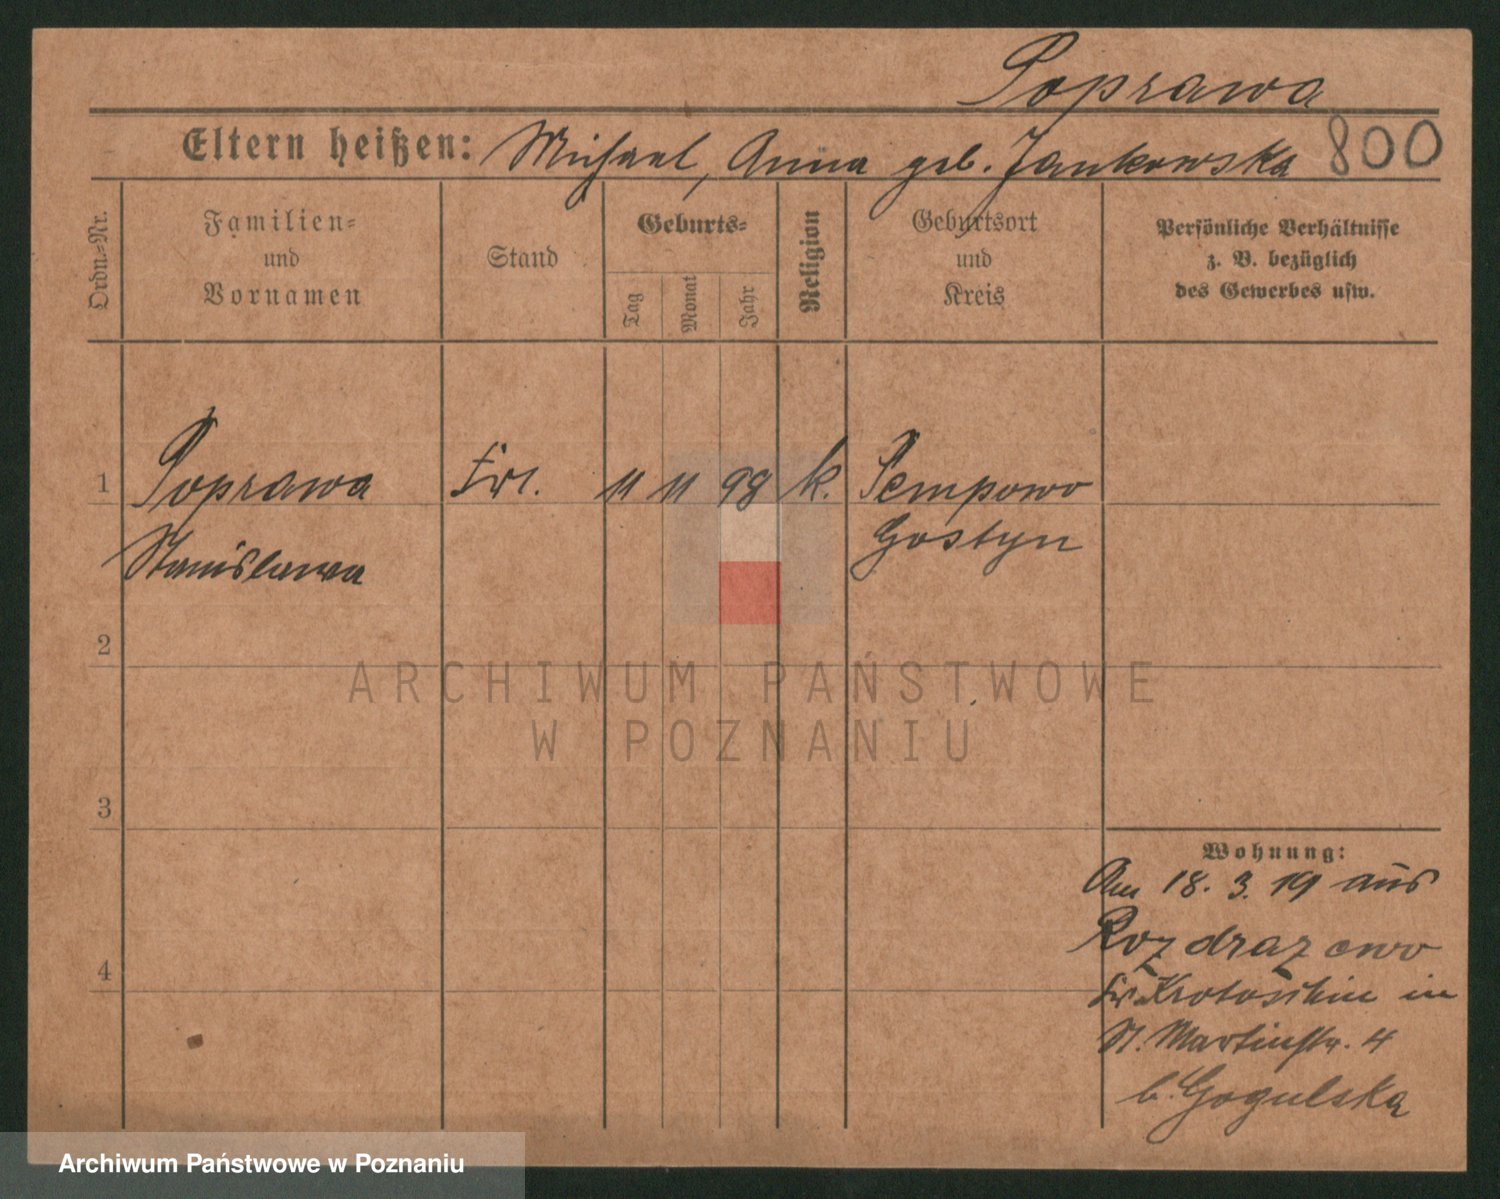 Poprawa
Eltern heißen: Michael, Anna geb. Jankowska 800
Ordn.-Nr.
Familien-
und
Vornamen
Stand
Geburts-
Tag
Monat
Jahr
Religion
Geburtsort
und
Kreis
Persönliche Verhältnisse
z. B. bezüglich
des Gewerbes usw.
1 Poprawa Frl. 11 11 98 k. Pempowo
Stanislawa Gostyn
2
3
4
Wohnung:
Am 18. 3. 19 aus
Rozdrazewo
Kr. Krotoschin in
St. Martinstr. 4
b. Gogulska
ARCHIWUM PAŃSTWOWE
W POZNANIU
Archiwum Państwowe w Poznaniu